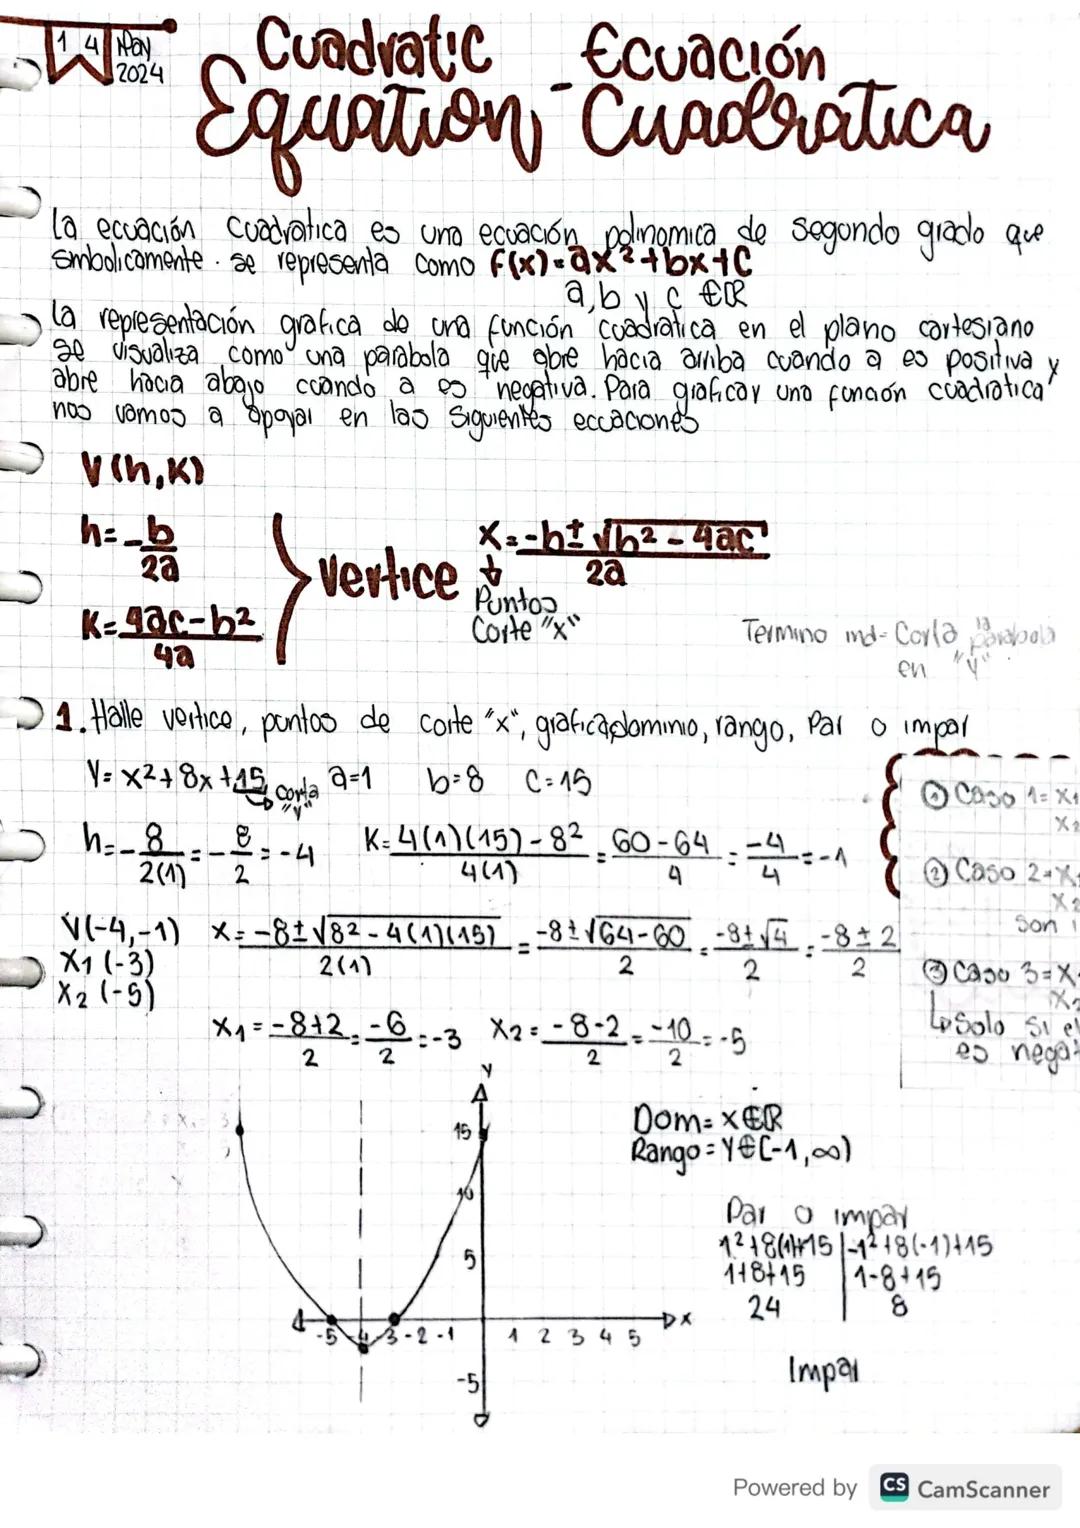 14 May 2024
Cuadratic Equation - Ecuación Cuadratica
La ecuación cuadratica es una ecuación polinomica de segundo grado que
simbolicamente. se representa como f(x)=ax²+bx+c
a,b y c ∈ℝ
La representación grafica de una función cuadratica en el plano cartesiano
se visualiza como una parabola que abre hacia arriba cuando a es positiva y
abre hacia abajo cuando a es negativa. Para graficar una función cuadratica
nos vamos a apoyar en las siguientes ecuaciones
V(h,k)
h=-b/2a
K=4ac-b²/4a
vertice
X=-b±√b²-4ac/2a
Puntos
Corte "x"
Termino ind- Corta la parabola
en "y"
1. Halle vertice, puntos de corte "x", grafica, dominio, rango, Par o impar
Y=x²+8x+15 corta "y" a=1 b=8 C=15
h=-8/2(1)=-8/2=-4 K=4(1)(15)-8²/4(1)=60-64/4=-4/4=-1
V(-4,-1) X=-8±√8²-4(1)(15)/2(1)=-8±√64-60/2=-8±√4/2=-8±2/2
X₁(-3)
X₂(-5)
X₁=-8+2/2=-6/2=-3 X₂=-8-2/2=-10/2=-5
① Caso 1=X₁
X₂
② Caso 2=X₁
X₂
Son
③ Caso 3=X
X₂
Solo si el
es negat
Y
15
10
5
-5 4 -3 -2 -1 1 2 3 4 5 X
-5
Dom=X∈ℝ
Rango=Y∈[-1,∞)
Par o impar
1²+8(1)+15 | -1²+8(-1)+15
1+8+15 | 1-8+15
24 | 8
Impar
Powered by CS CamScanner